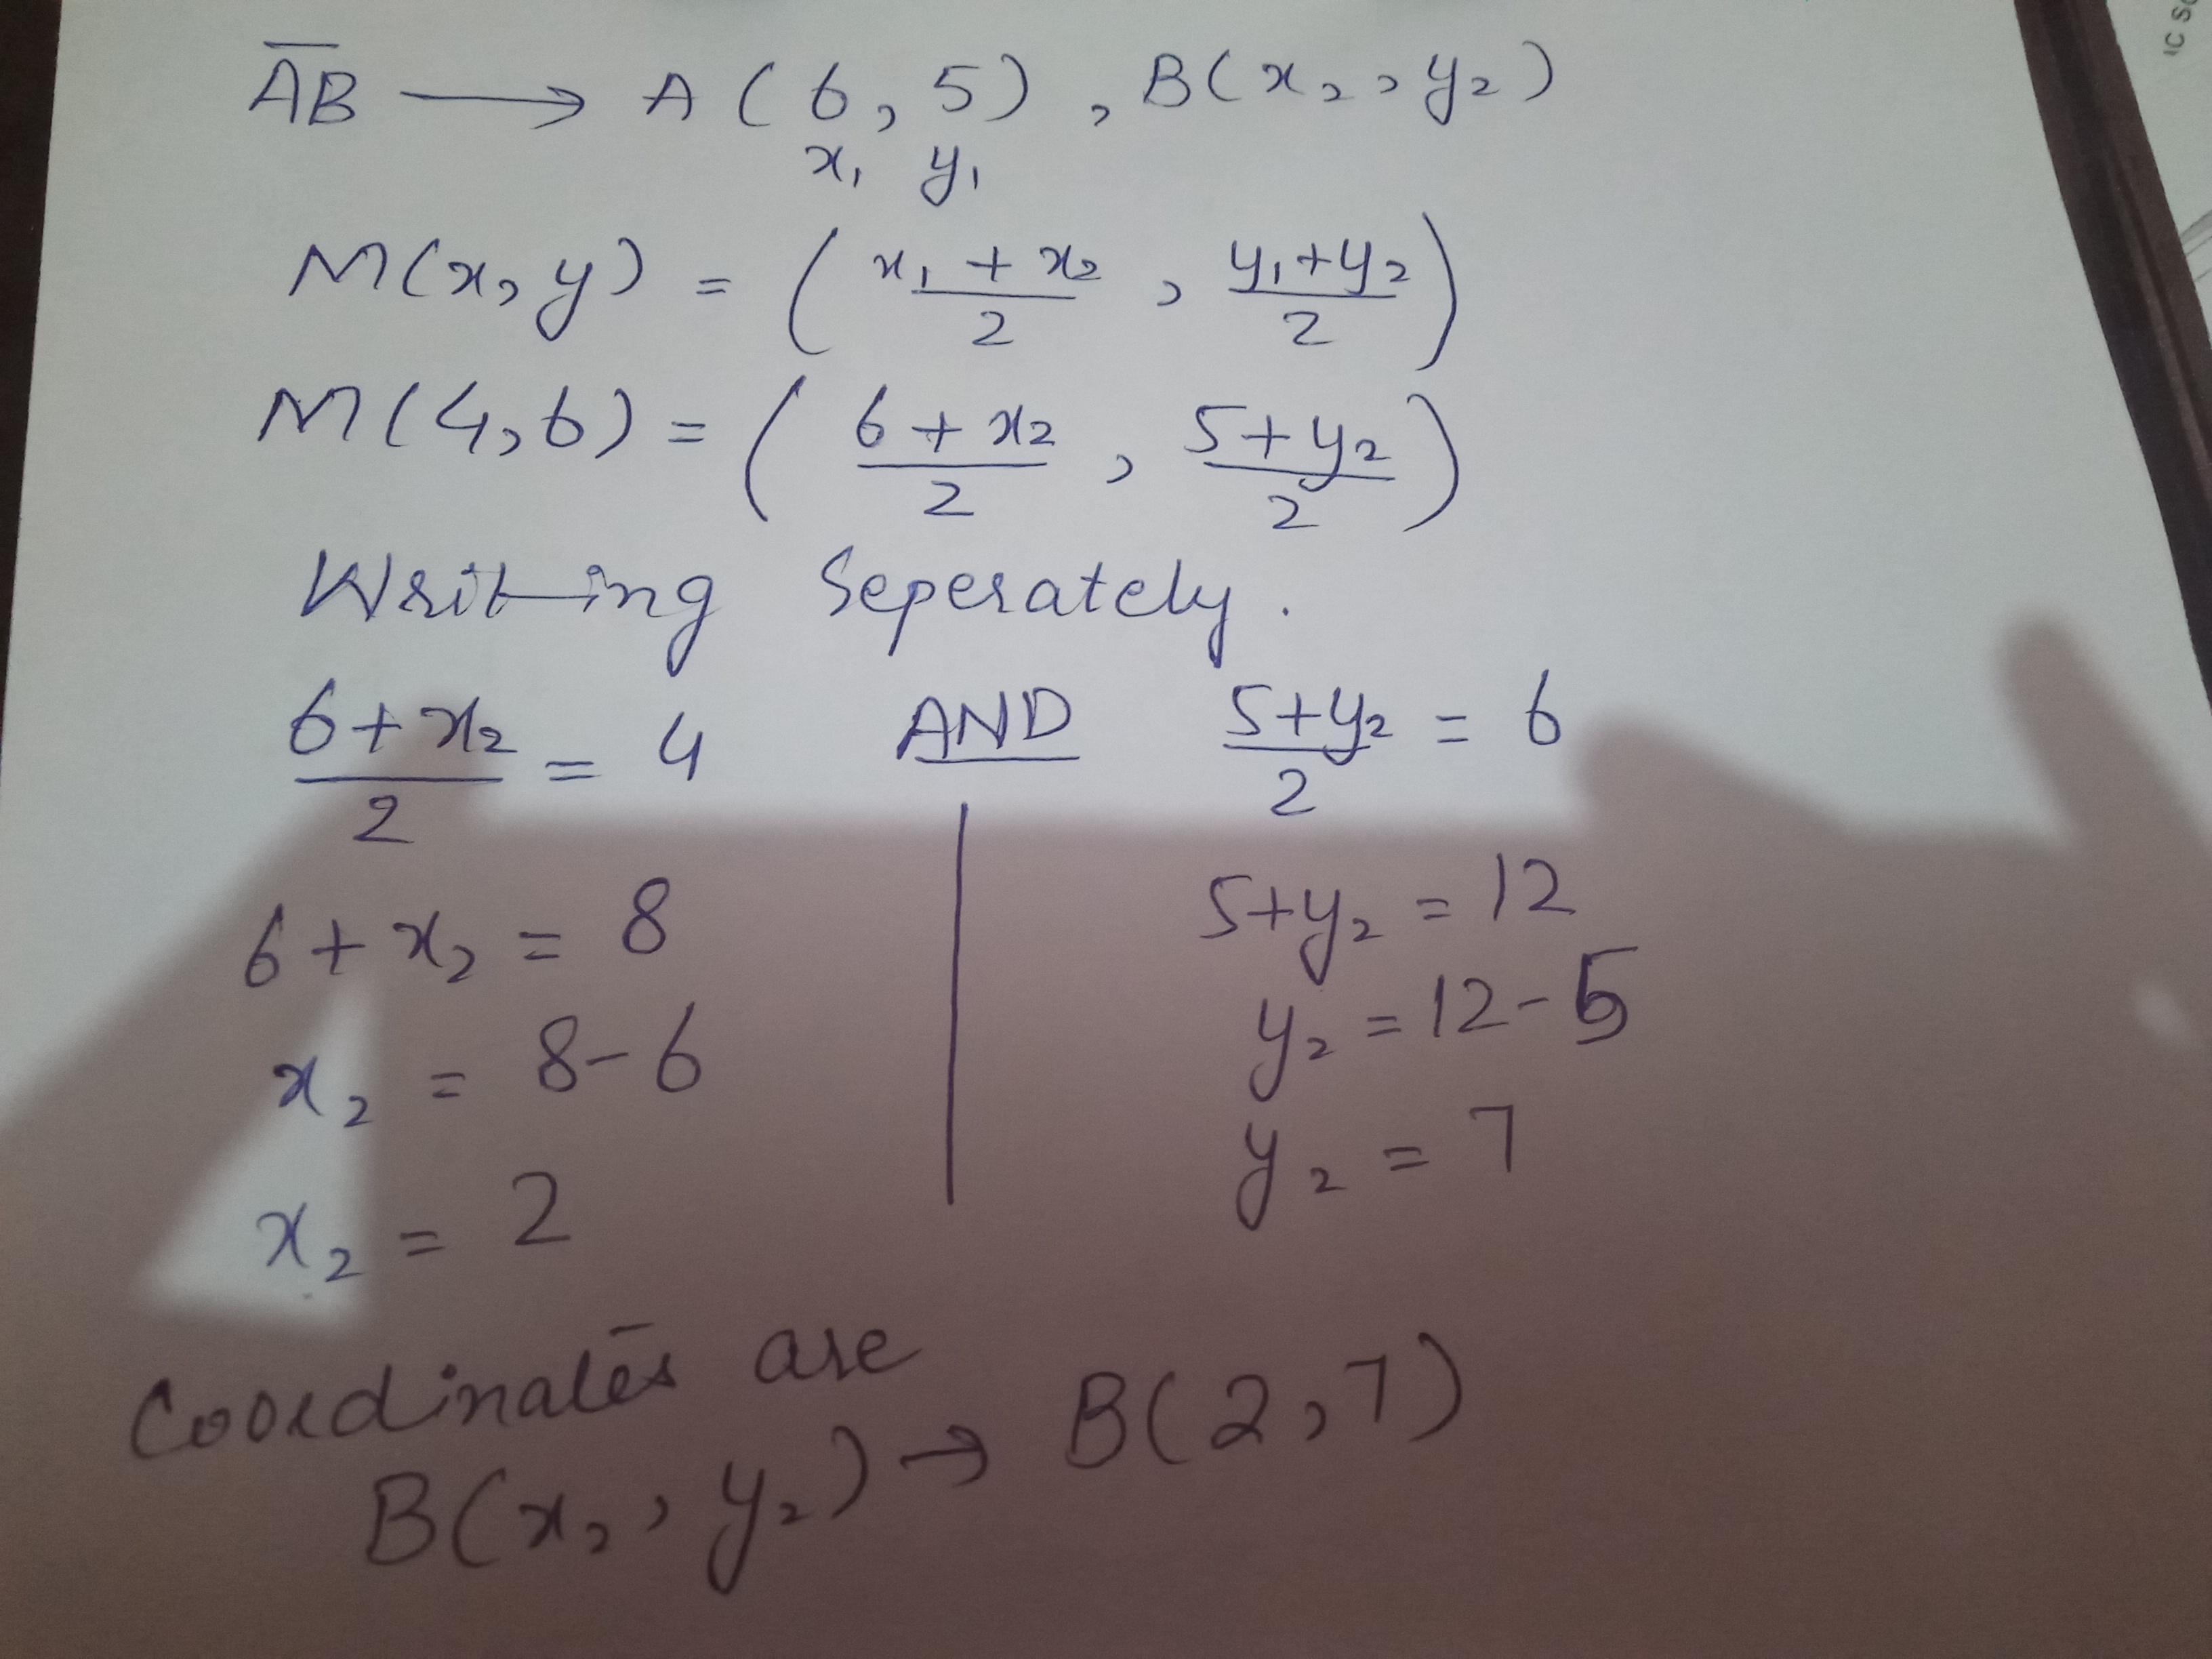 A̅B̅ → A ( 6 , 5 ) , B ( x₂ , y₂ )
x₁ y₁
M(x, y) = ( x₁ + x₂ / 2 , y₁ + y₂ / 2 )
M(4, 6) = ( 6 + x₂ / 2 , 5 + y₂ / 2 )
Writing Seperately.
6 + x₂ / 2 = 4 AND 5 + y₂ / 2 = 6
6 + x₂ = 8 5 + y₂ = 12
x₂ = 8 - 6 y₂ = 12 - 5
x₂ = 2 y₂ = 7
Coordinates are
B(x₂, y₂) → B(2, 7)